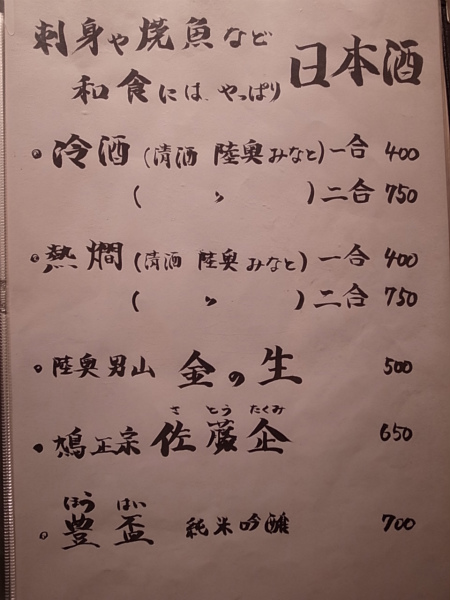 刺身や焼魚など
和食には、やっぱり 日本酒
冷酒（清酒 陸奥みなと）一合 400
（ 〃 ）二合 750
熱燗（清酒 陸奥みなと）一合 400
（ 〃 ）二合 750
陸奥男山 金の生 500
さ とう たくみ
鳩正宗 佐藤企 650
ほう はい
豊盃 純米吟醸 700